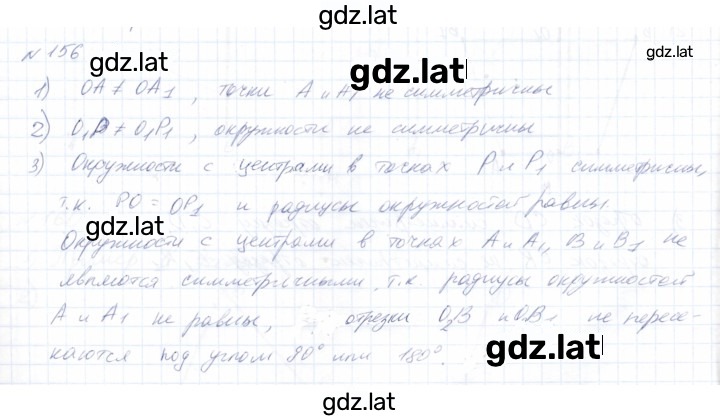 gdz.lat
№ 156
gdz.lat
gdz.lat
gdz.lat
1) OA ≠ OA1, точки A и A1 не симметричны
2) O1P ≠ O1P1, окружности не симметричны
3) Окружности с центрами в точках P и P1 симметричны,
т.к. PO = OP1 и радиусы окружностей равны
gdz.lat
Окружности с центрами в точках A и A1, B и B1 не
являются симметричными, т.к. радиусы окружностей
A и A1 не равны, отрезки O2B и OB1 не пересе-
каются под углом 90° или 180°.
gdz.lat
gdz.lat